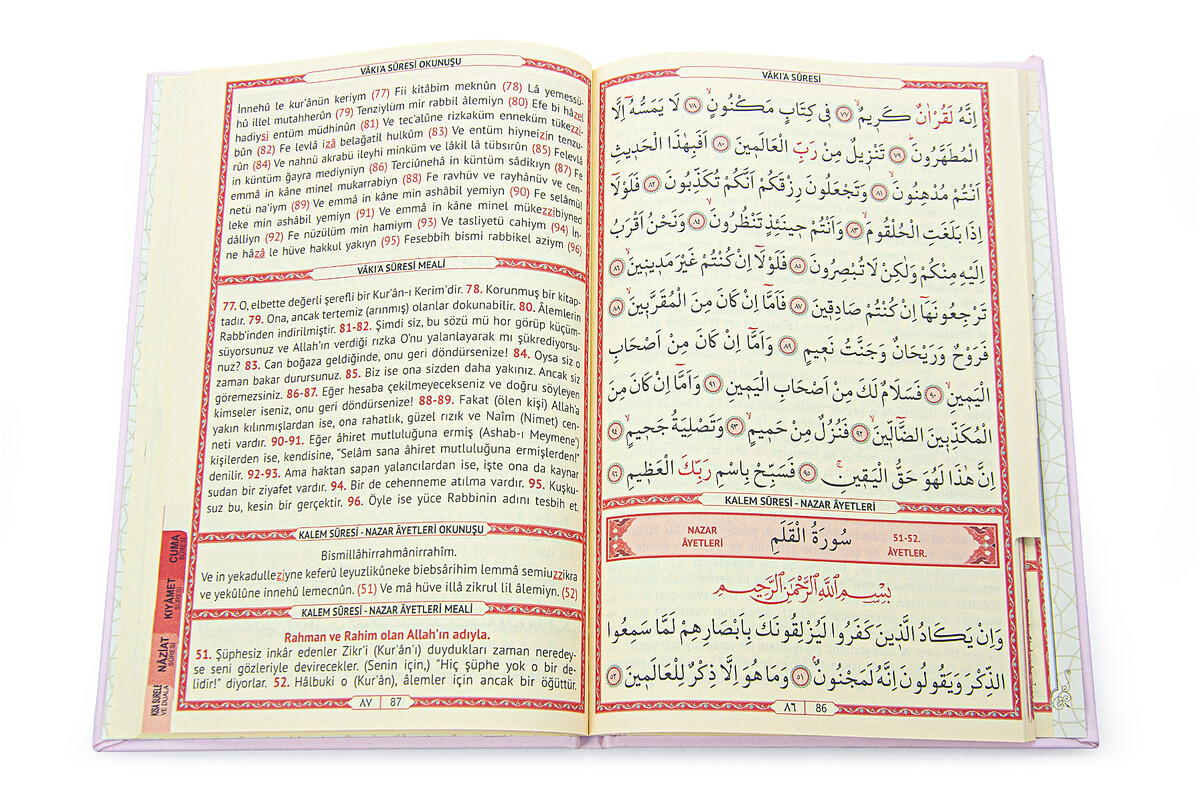 VÂKI'A SÛRESİ
اِنَّهُ لَقُرْاٰنٌ كَر۪يمٌۙ ﴿٧٧﴾ ف۪ي كِتَابٍ مَكْنُونٍۙ ﴿٧٨﴾ لَا يَمَسُّهُٓ اِلَّا
الْمُطَهَّرُونَۜ ﴿٧٩﴾ تَنْز۪يلٌ مِنْ رَبِّ الْعَالَم۪ينَ ﴿٨٠﴾ اَفَبِهٰذَا الْحَد۪يثِ
اَنْتُمْ مُدْهِنُونَۙ ﴿٨١﴾ وَتَجْعَلُونَ رِزْقَكُمْ اَنَّكُمْ تُكَذِّبُونَ ﴿٨٢﴾ فَلَوْلَٓا
اِذَا بَلَغَتِ الْحُلْقُومَۙ ﴿٨٣﴾ وَاَنْتُمْ ح۪ينَئِذٍ تَنْظُرُونَۙ ﴿٨٤﴾ وَنَحْنُ اَقْرَبُ
اِلَيْهِ مِنْكُمْ وَلٰكِنْ لَا تُبْصِرُونَ ﴿٨٥﴾ فَلَوْلَٓا اِنْ كُنْتُمْ غَيْرَ مَد۪ين۪ينَۙ ﴿٨٦﴾
تَرْجِعُونَهَٓا اِنْ كُنْتُمْ صَادِق۪ينَ ﴿٨٧﴾ فَاَمَّٓا اِنْ كَانَ مِنَ الْمُقَرَّب۪ينَۙ ﴿٨٨﴾
فَرَوْحٌ وَرَيْحَانٌ وَجَنَّتُ نَع۪يمٍ ﴿٨٩﴾ وَاَمَّٓا اِنْ كَانَ مِنْ اَصْحَابِ
الْيَم۪ينِۙ ﴿٩٠﴾ فَسَلَامٌ لَكَ مِنْ اَصْحَابِ الْيَم۪ينِ ﴿٩١﴾ وَاَمَّٓا اِنْ كَانَ مِنَ
الْمُكَذِّب۪ينَ الضَّٓالّ۪ينَۙ ﴿٩٢﴾ فَنُزُلٌ مِنْ حَم۪يمٍۙ ﴿٩٣﴾ وَتَصْلِيَةُ جَح۪يمٍۙ ﴿٩٤﴾
اِنَّ هٰذَا لَهُوَ حَقُّ الْيَق۪ينِۚ ﴿٩٥﴾ فَسَبِّحْ بِاسْمِ رَبِّكَ الْعَظ۪يمِ ﴿٩٦﴾
KALEM SÛRESİ - NAZAR ÂYETLERİ
NAZAR ÂYETLERİ سُورَةُ الْقَلَمِ 51-52. ÂYETLER.
بِسْمِ اللّٰهِ الرَّحْمٰنِ الرَّح۪يمِ
وَاِنْ يَكَادُ الَّذ۪ينَ كَفَرُوا لَيُزْلِقُونَكَ بِاَبْصَارِهِمْ لَمَّا سَمِعُوا
الذِّكْرَ وَيَقُولُونَ اِنَّهُ لَمَجْنُونٌۢ ﴿٥١﴾ وَمَا هُوَ اِلَّا ذِكْرٌ لِلْعَالَم۪ينَ ﴿٥٢﴾
٨٦ 86
VÂKI'A SÛRESİ OKUNUŞU
İnnehû le kur'ânün keriym (77) Fii kitâbim meknûn (78) Lâ yemessü-
hû illel mutahherûn (79) Tenziylüm mir rabbil âlemiyn (80) Efe bi hâzel
hadiysi entüm müdhinûn (81) Ve tec'alûne rizkaküm enneküm tükezzi-
bûn (82) Fe levlâ izâ belağatil hulkûm (83) Ve entüm hiyneizin tenzu-
rûn (84) Ve nahnü akrabü ileyhi minküm ve lâkil lâ tübsırûn (85) Felevlâ
in küntüm ğayra mediyniyn (86) Terciûnehâ in küntüm sâdikıyn (87) Fe
emmâ in kâne minel mukarrabiyn (88) Fe ravhüv ve rayhânüv ve cen-
netü na'iym (89) Ve emmâ in kâne min ashâbil yemiyn (90) Fe selâmül
leke min ashâbil yemiyn (91) Ve emmâ in kâne minel mükezzibiyned
dâlliyn (92) Fe nüzülüm min hamiym (93) Ve tasliyetü cahiym (94) İn-
ne hâzâ le hüve hakkul yakıyn (95) Fesebbih bismi rabbikel aziym (96)
VÂKI'A SÛRESİ MEALİ
77. O, elbette değerli şerefli bir Kur'ân-ı Kerim'dir. 78. Korunmuş bir kitap-
tadır. 79. Ona, ancak tertemiz (arınmış) olanlar dokunabilir. 80. Âlemlerin
Rabb'inden indirilmiştir. 81-82. Şimdi siz, bu sözü mü hor görüp küçüm-
süyorsunuz ve Allah'ın verdiği rızka O'nu yalanlayarak mı şükrediyorsu-
nuz? 83. Can boğaza geldiğinde, onu geri döndürsenize! 84. Oysa siz o
zaman bakar durursunuz. 85. Biz ise ona sizden daha yakınız. Ancak siz
göremezsiniz. 86-87. Eğer hesaba çekilmeyecekseniz ve doğru söyleyen
kimseler iseniz, onu geri döndürsenize! 88-89. Fakat (ölen kişi) Allah'a
yakın kılınmışlardan ise, ona rahatlık, güzel rızık ve Naîm (Nimet) cen-
neti vardır. 90-91. Eğer âhiret mutluluğuna ermiş (Ashab-ı Meymene')
kişilerden ise, kendisine, "Selâm sana âhiret mutluluğuna ermişlerden!"
denilir. 92-93. Ama haktan sapan yalancılardan ise, işte ona da kaynar
sudan bir ziyafet vardır. 94. Bir de cehenneme atılma vardır. 95. Kuşku-
suz bu, kesin bir gerçektir. 96. Öyle ise yüce Rabbinin adını tesbih et.
KALEM SÛRESİ - NAZAR ÂYETLERİ OKUNUŞU
Bismillâhirrahmânirrahîm.
Ve in yekadulleziyne keferû leyuzlikûneke biebsârihim lemmâ semiuzzikra
ve yekûlûne innehû lemecnûn. (51) Ve mâ hüve illâ zikrul lil âlemiyn. (52)
KALEM SÛRESİ - NAZAR ÂYETLERİ MEALİ
Rahman ve Rahim olan Allah'ın adıyla.
51. Şüphesiz inkâr edenler Zikr'i (Kur'ân'ı) duydukları zaman neredey-
se seni gözleriyle devirecekler. (Senin için,) "Hiç şüphe yok o bir de-
lidir!" diyorlar. 52. Hâlbuki o (Kur'ân), âlemler için ancak bir öğüttür.
٨٧ 87
CUMA SÛRESİ
KIYÂMET SÛRESİ
NÂZİAT SÛRESİ
KISA SÛRELER VE DUALAR